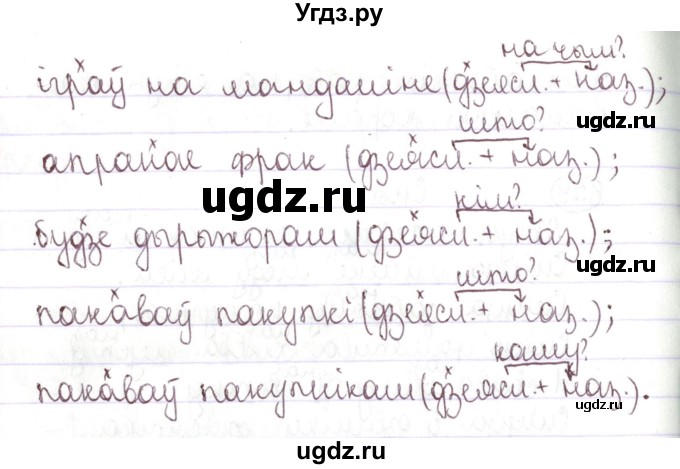 Угдз.ру
на чым?
іграў на мандаліне (дзеясл. + наз.);
што?
апранае фрак (дзеясл. + наз.);
кім?
будзе дырыжорам (дзеясл. + наз.);
што?
пакаваў пакупкі (дзеясл. + наз.);
каму?
пакаваў пакупнікам (дзеясл. + наз.).
ugdz.ru
ugdz.ru
ugdz.ru
ugdz.ru
ugdz.ru
ugdz.ru